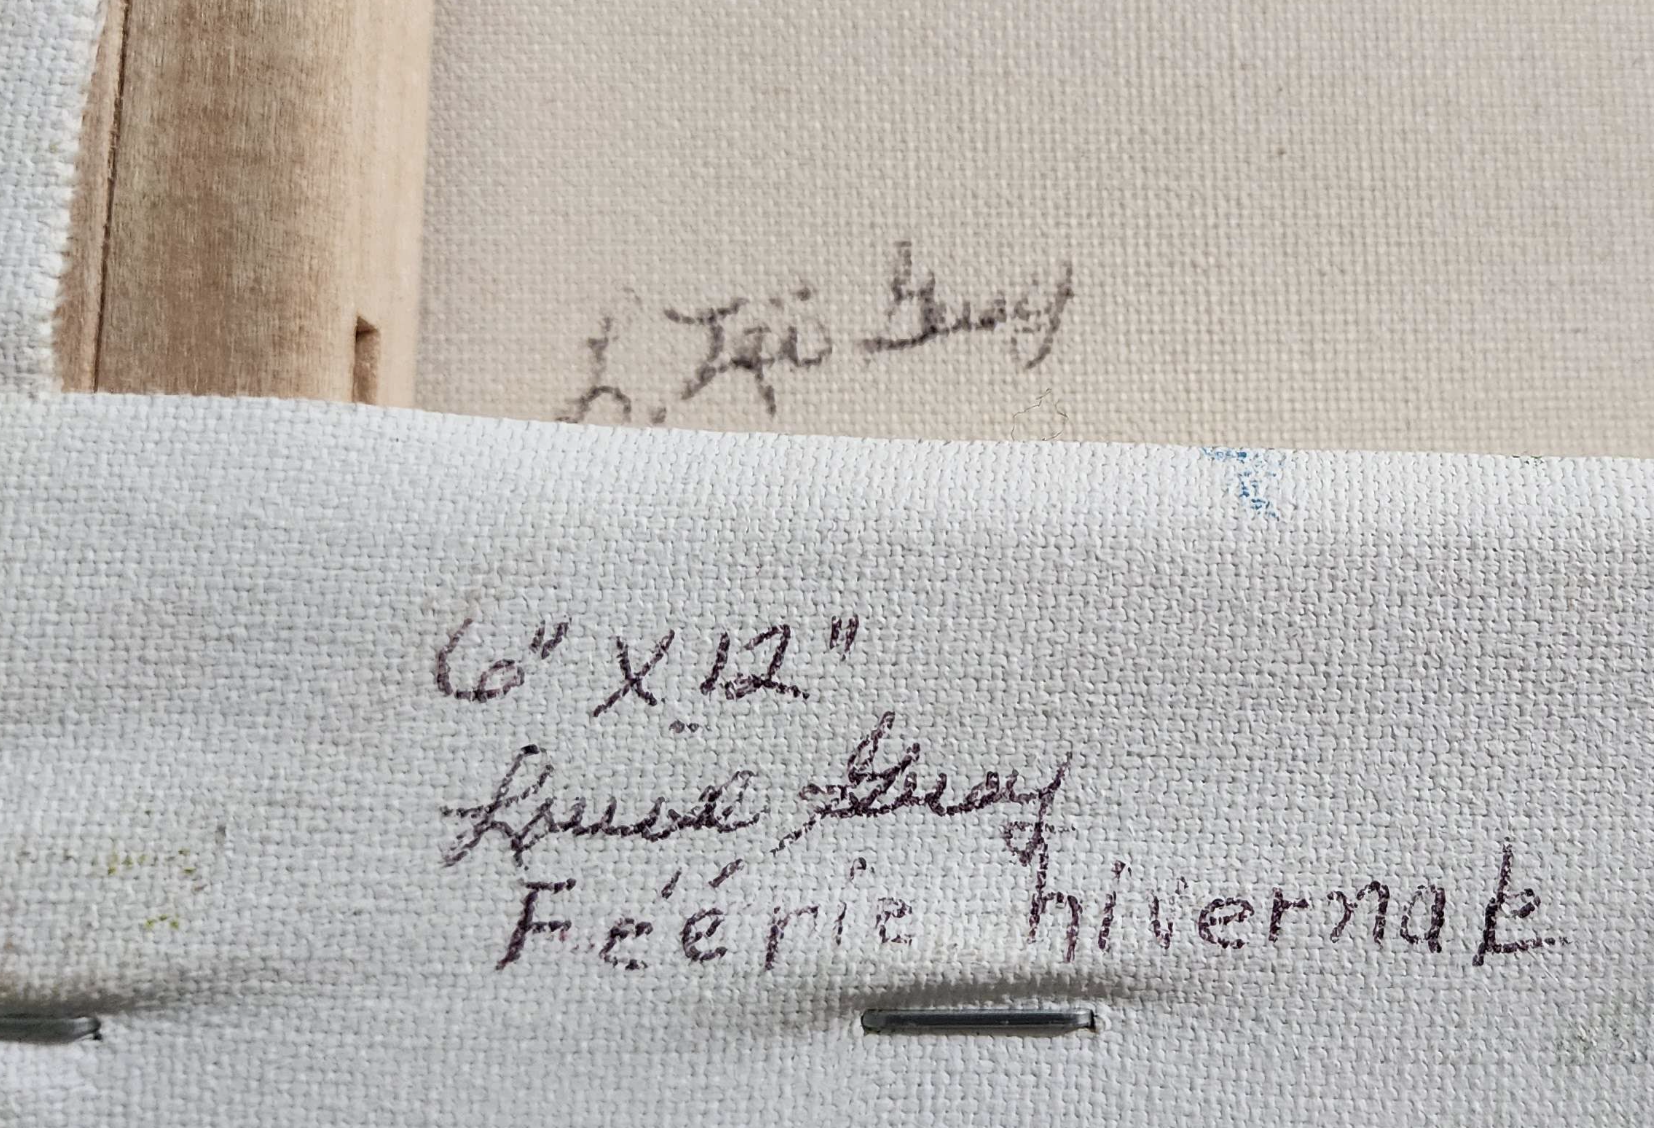 Guay
6" X 12"
Louise Guay
Féérie hivernale